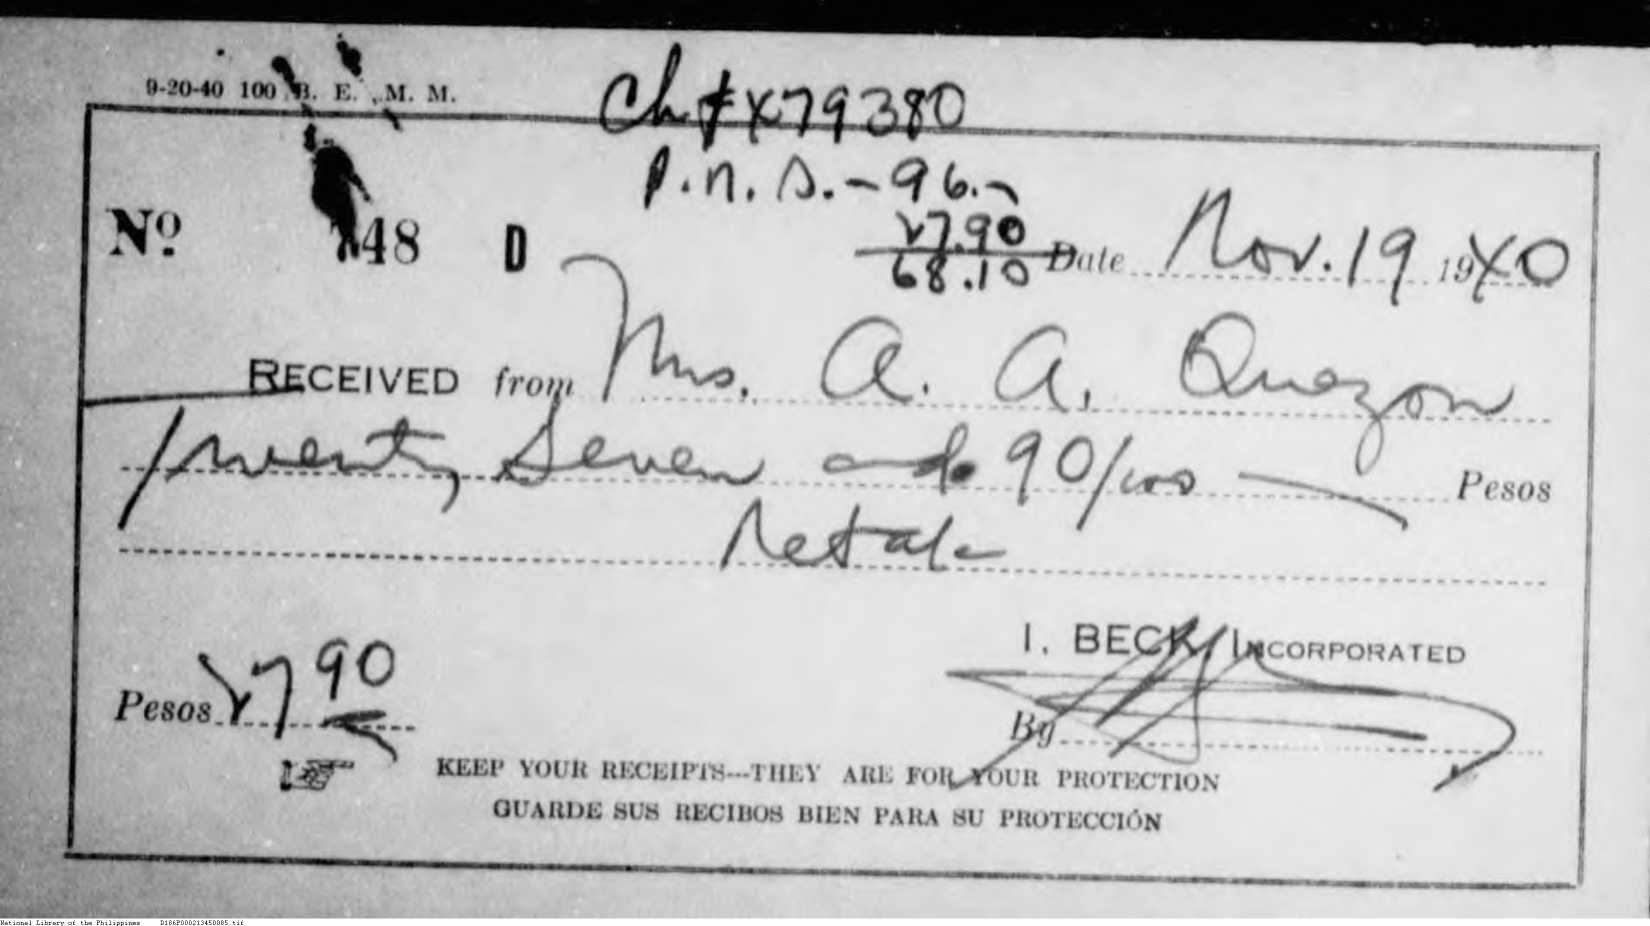 9-20-40 100 B. E. M. M.
Ch # X79380
P. N. S. - 96.-
27.90
68.10
Nº 48 D
Date Nov. 19 1940
RECEIVED from Mrs. A. A. Quezon
Twenty Seven and 90/100 Pesos
I. BECK, INCORPORATED
Pesos 27 90
By
KEEP YOUR RECEIPTS---THEY ARE FOR YOUR PROTECTION
GUARDE SUS RECIBOS BIEN PARA SU PROTECCIÓN
National Library of the Philippines D186P000213450085.tif